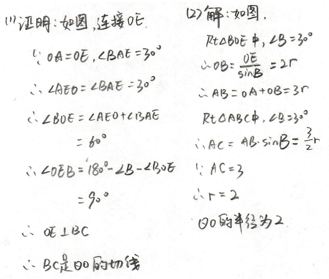 (1)证明:如图,连接OE.
∵OA=OE,∠BAE=30°
∴∠AEO=∠BAE=30°
∴∠BOE=∠AEO+∠BAE
=60°
∴∠OEB=180°-∠B-∠BOE
=90°
∴OE⊥BC
∴BC是⊙O的切线
(2)解:如图,
Rt△BOE中,∠B=30°
∴OB=OE/sinB=2r
∴AB=OA+OB=3r
Rt△ABC中,∠B=30°
∴AC=AB·sinB=3/2r
∵AC=3
∴r=2
⊙O的半径为2